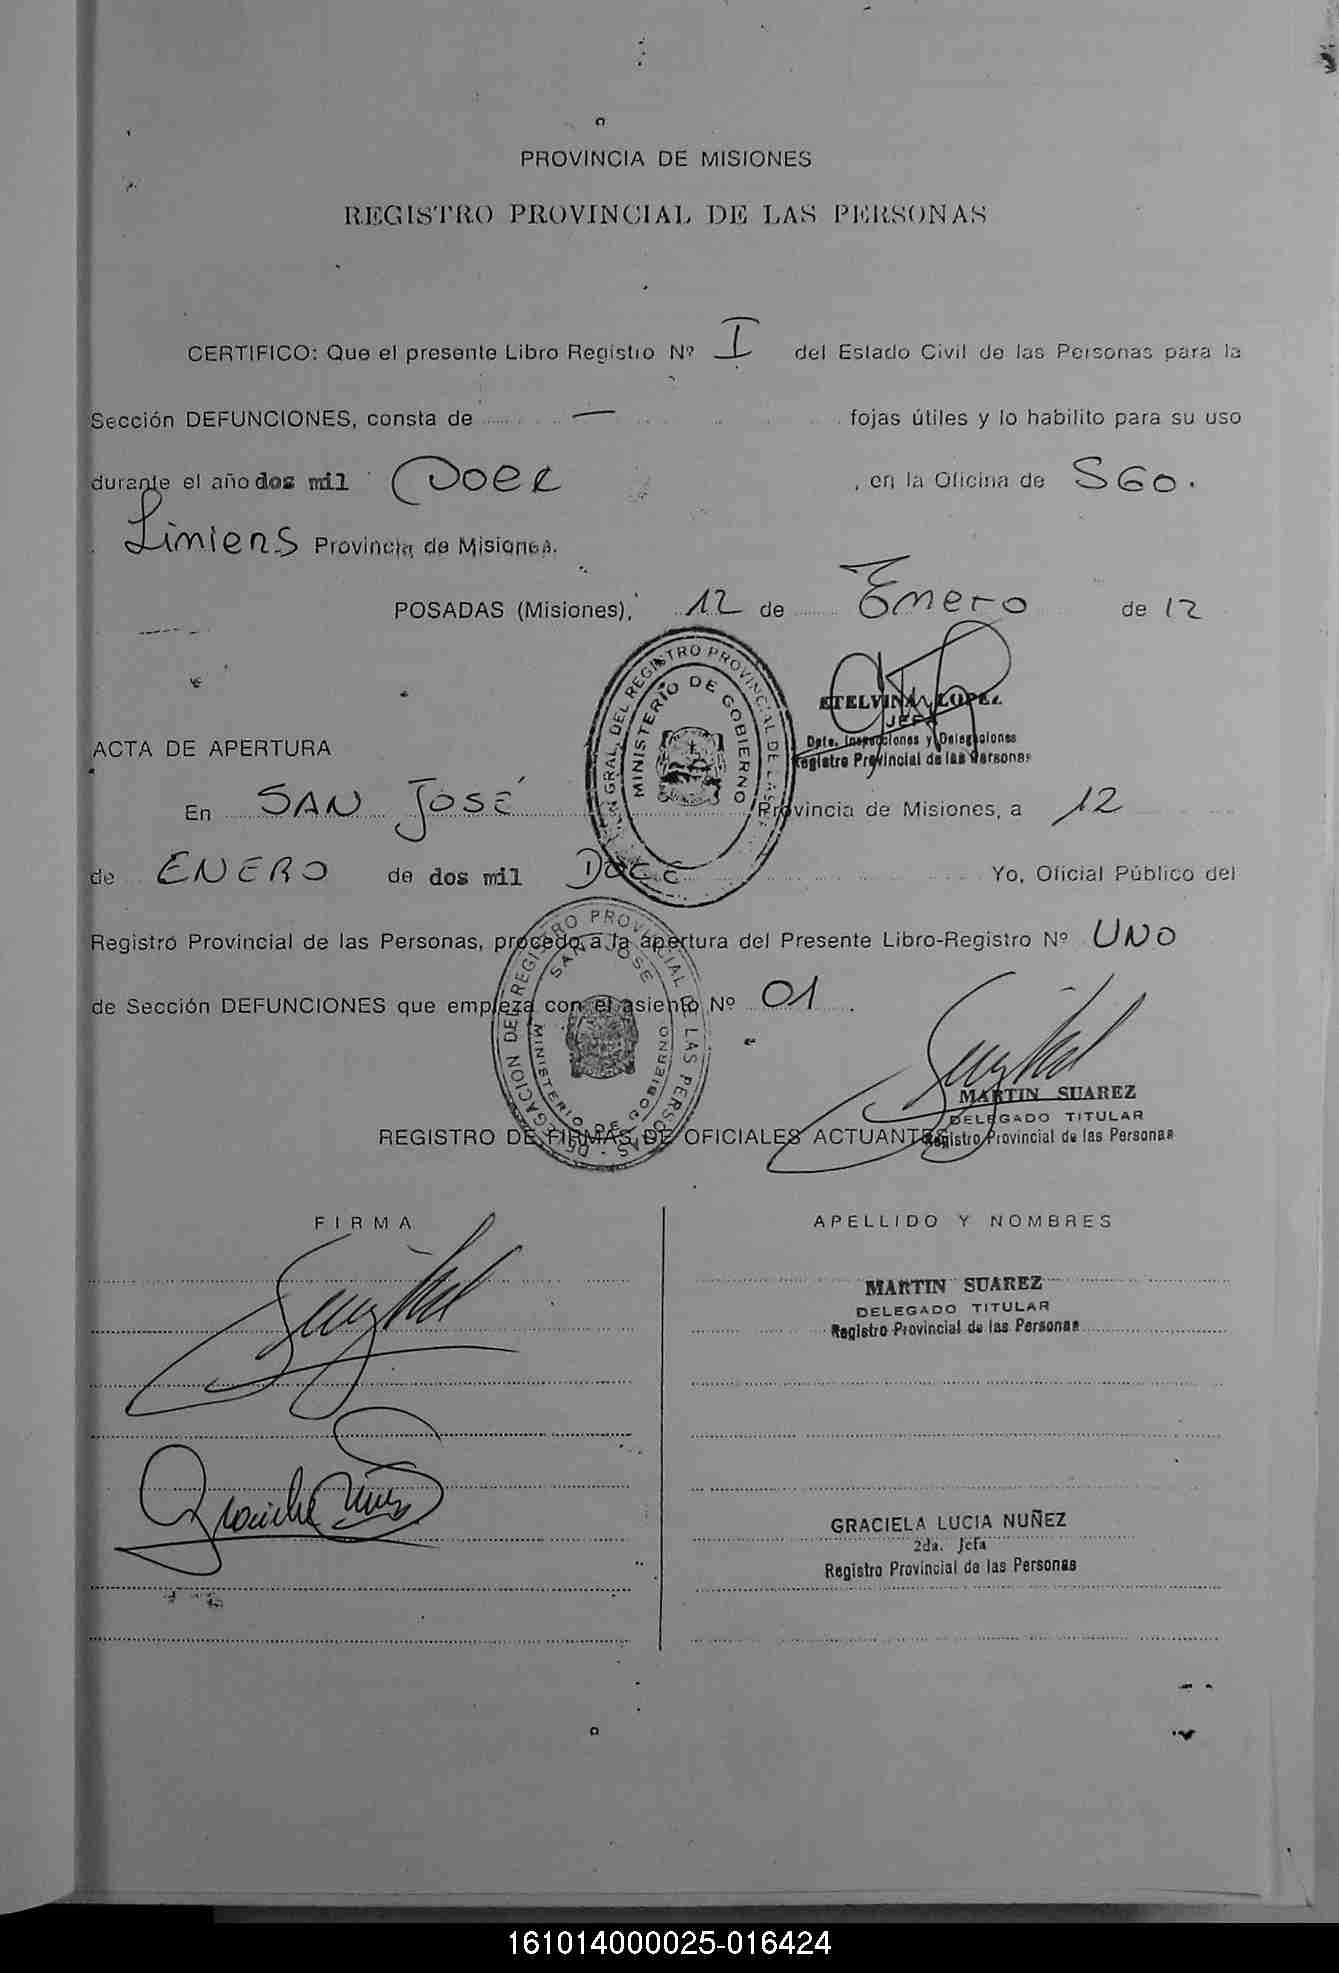 PROVINCIA DE MISIONES
REGISTRO PROVINCIAL DE LAS PERSONAS
CERTIFICO: Que el presente Libro Registro Nº I del Estado Civil de las Personas para la
Sección DEFUNCIONES, consta de — fojas útiles y lo habilito para su uso
durante el año dos mil Doce , en la Oficina de SGO.
Liniers Provincia de Misiones.
POSADAS (Misiones), 12 de Enero de 12
DEL REGISTRO PROVINCIAL DE LAS
MINISTERIO DE GOBIERNO
ETELVINA LOPEZ
JEFA
Dpto. Inspecciones y Delegaciones
Registro Provincial de las Personas
ACTA DE APERTURA
En SAN JOSÉ Provincia de Misiones, a 12
de ENERO de dos mil DOCE Yo, Oficial Público del
Registro Provincial de las Personas, procedo a la apertura del Presente Libro-Registro Nº UNO
de Sección DEFUNCIONES que empieza con el asiento Nº 01.
DELEGACION DEL REGISTRO PROVINCIAL DE LAS PERSONAS
SAN JOSE
MINISTERIO DE GOBIERNO
MARTIN SUAREZ
DELEGADO TITULAR
Registro Provincial de las Personas
REGISTRO DE FIRMAS DE OFICIALES ACTUANTES
FIRMA APELLIDO Y NOMBRES
MARTIN SUAREZ
DELEGADO TITULAR
Registro Provincial de las Personas
Graciela Nuñez
GRACIELA LUCIA NUÑEZ
2da. Jefa
Registro Provincial de las Personas
161014000025-016424